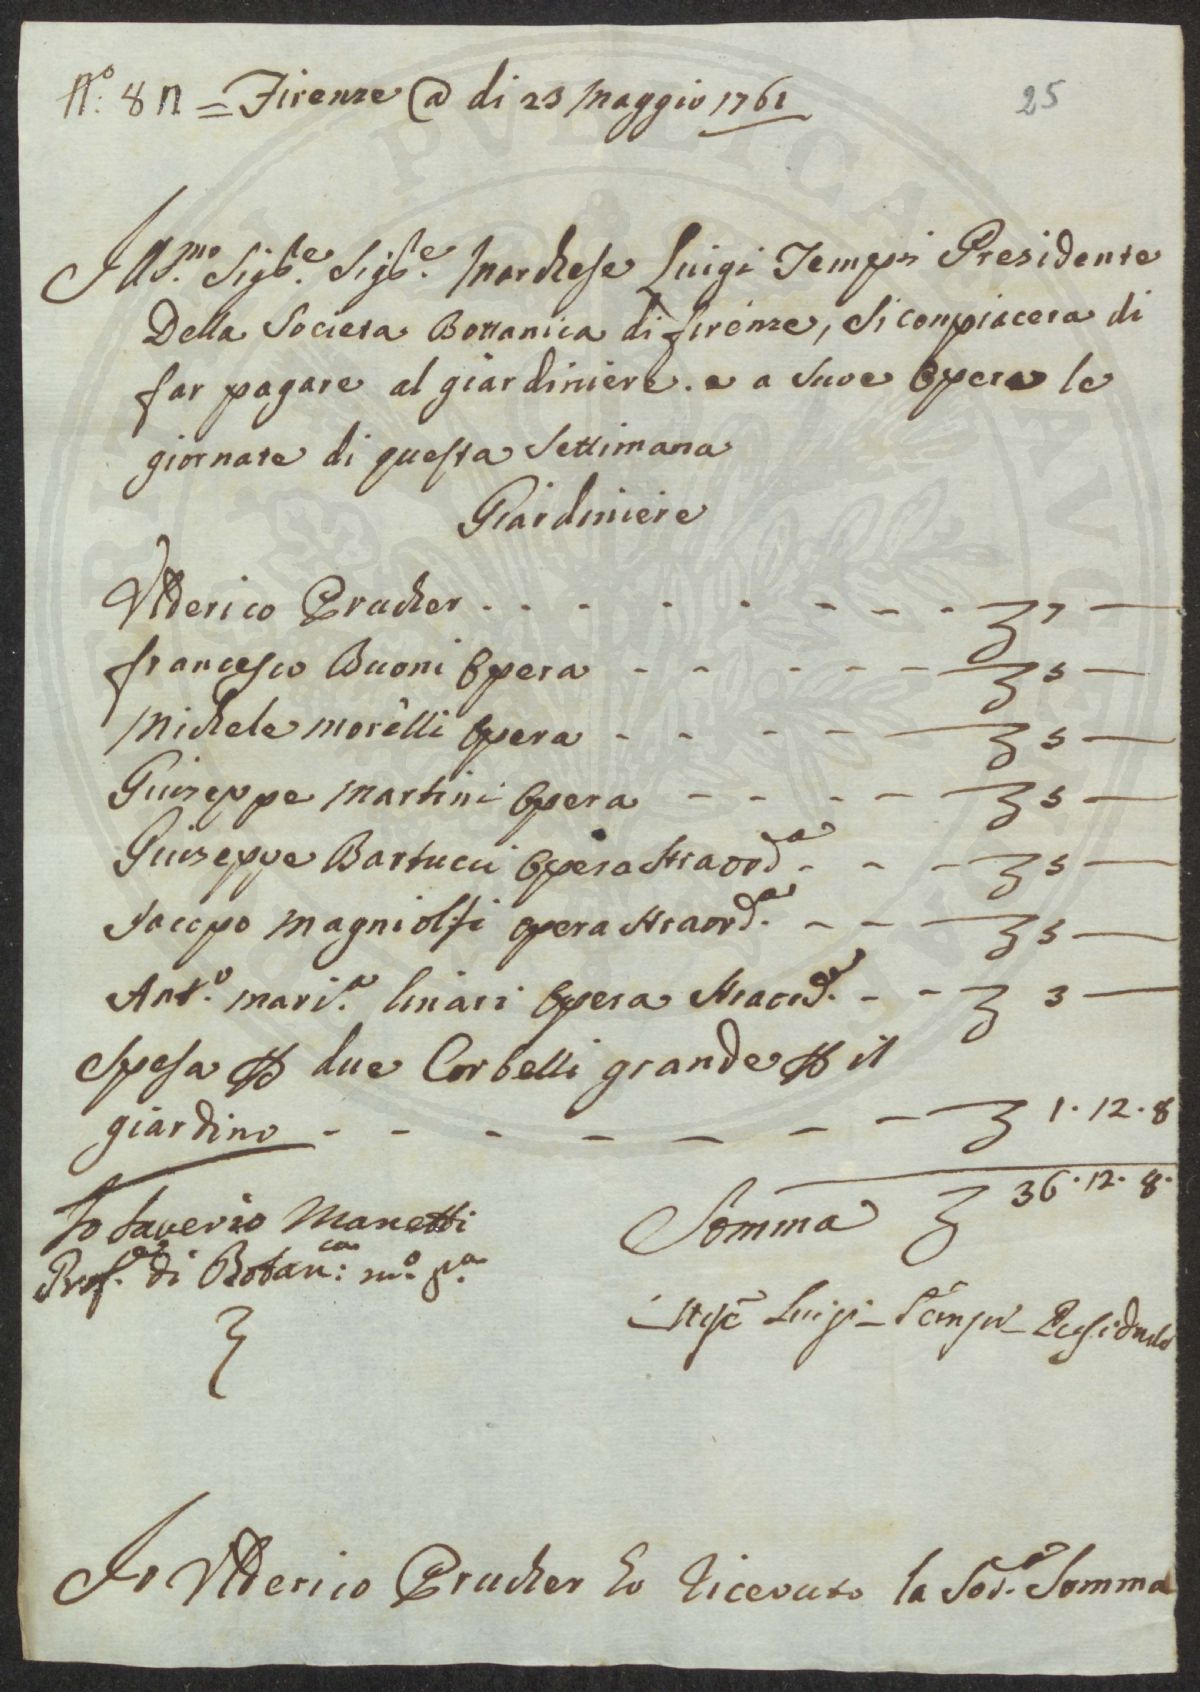 N.º 8 n = Firenze @ di 23 Maggio 1761
25
Ill.mo Sig.re Sig.re Marchese Luigi Tempi Presidente
Della Societa Bottanica di firenze, si conpiacera di
far pagare al giardiniere. e a sue Opera le
giornate di questa Settimana
Giardiniere
Ulderico Prucher - - - - - - - - 7 —
francesco Buoni Opera - - - - - - 5 —
Michele morelli Opera - - - - 5 —
Guiseppe Martini Opera - - - - 5 —
Guiseppe Bartucci Opera Straord.a - - - 5 —
Jacopo Magniolfi opera straord.a - - - 5 —
Ant.o mari.a linari Opera Straord.a - - 3 —
Spesa p due Corbelli grande p il
giardino - - - - - - - 1. 12. 8
Somma 36. 12. 8.
Io Saverio Manetti
Prof.e di Botan.ca: m.o p.a
Luigi Tempi Presidente
Io Ulderico Prucher ho riceuuto la Sod.a Somma
PVBLICA